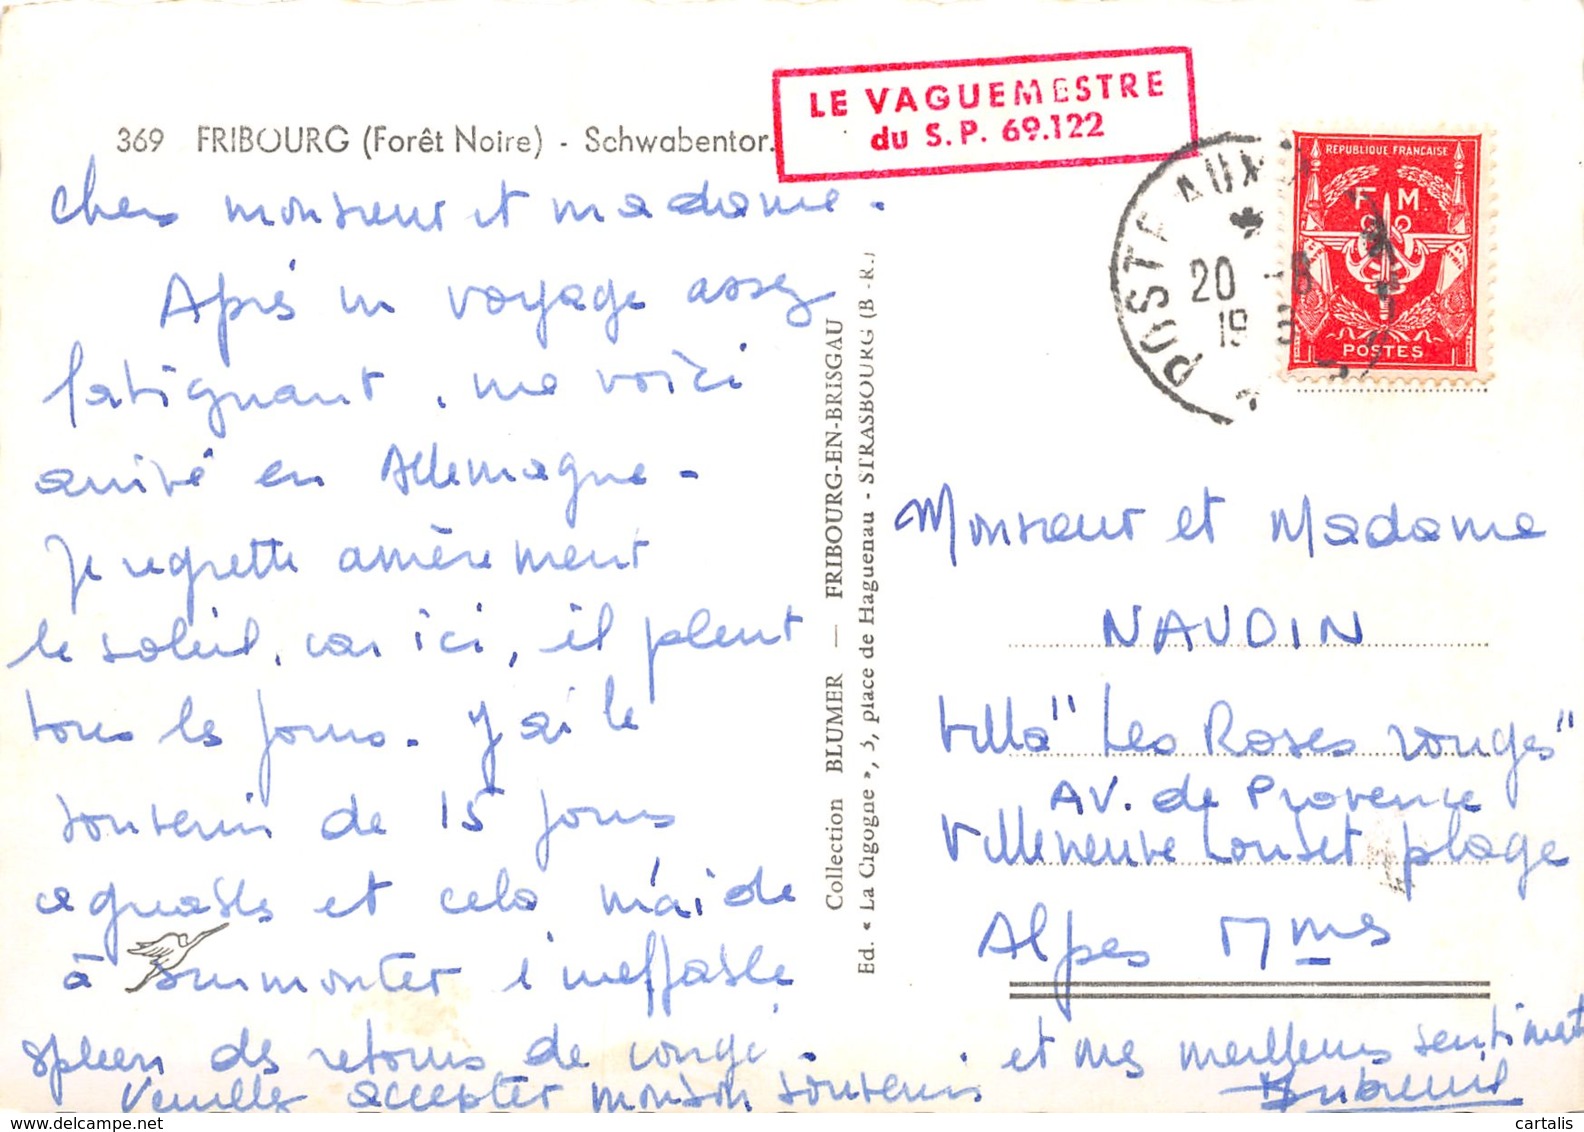 LE VAGUEMESTRE
du S.P. 69.122
369 FRIBOURG (Forêt Noire) - Schwabentor.
REPUBLIQUE FRANÇAISE
F. M.
POSTES
POSTE AUX
20 -8
19 5
chers monsieur et madame.
Après un voyage assez
fatignant, me voici
arrivé en Allemagne.
Je regrette amèrement
le soleil, car ici, il pleut
tous les jours. J'ai le
souvenir de 15 jours
agréables et cela m'aide
à surmonter l'ineffable
spleen des retours de congé.
Veuillez accepter mon bon souvenir
et mes meilleurs sentiments
Dubreuil
Collection BLUMER — FRIBOURG-EN-BRISGAU
Ed. « La Cigogne », 5, place de Haguenau - STRASBOURG (B.-R.)
Monsieur et Madame
NAUDIN
Villa "Les Roses rouges"
AV. de Provence
Villeneuve Loubet plage
Alpes Mmes
cartalis